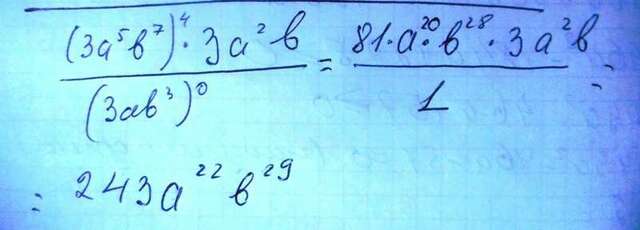 (3a⁵b⁷)⁴ · 3a²b / (3ab³)⁰ = 81·a²⁰·b²⁸ · 3a²b / 1 =
= 243a²²b²⁹